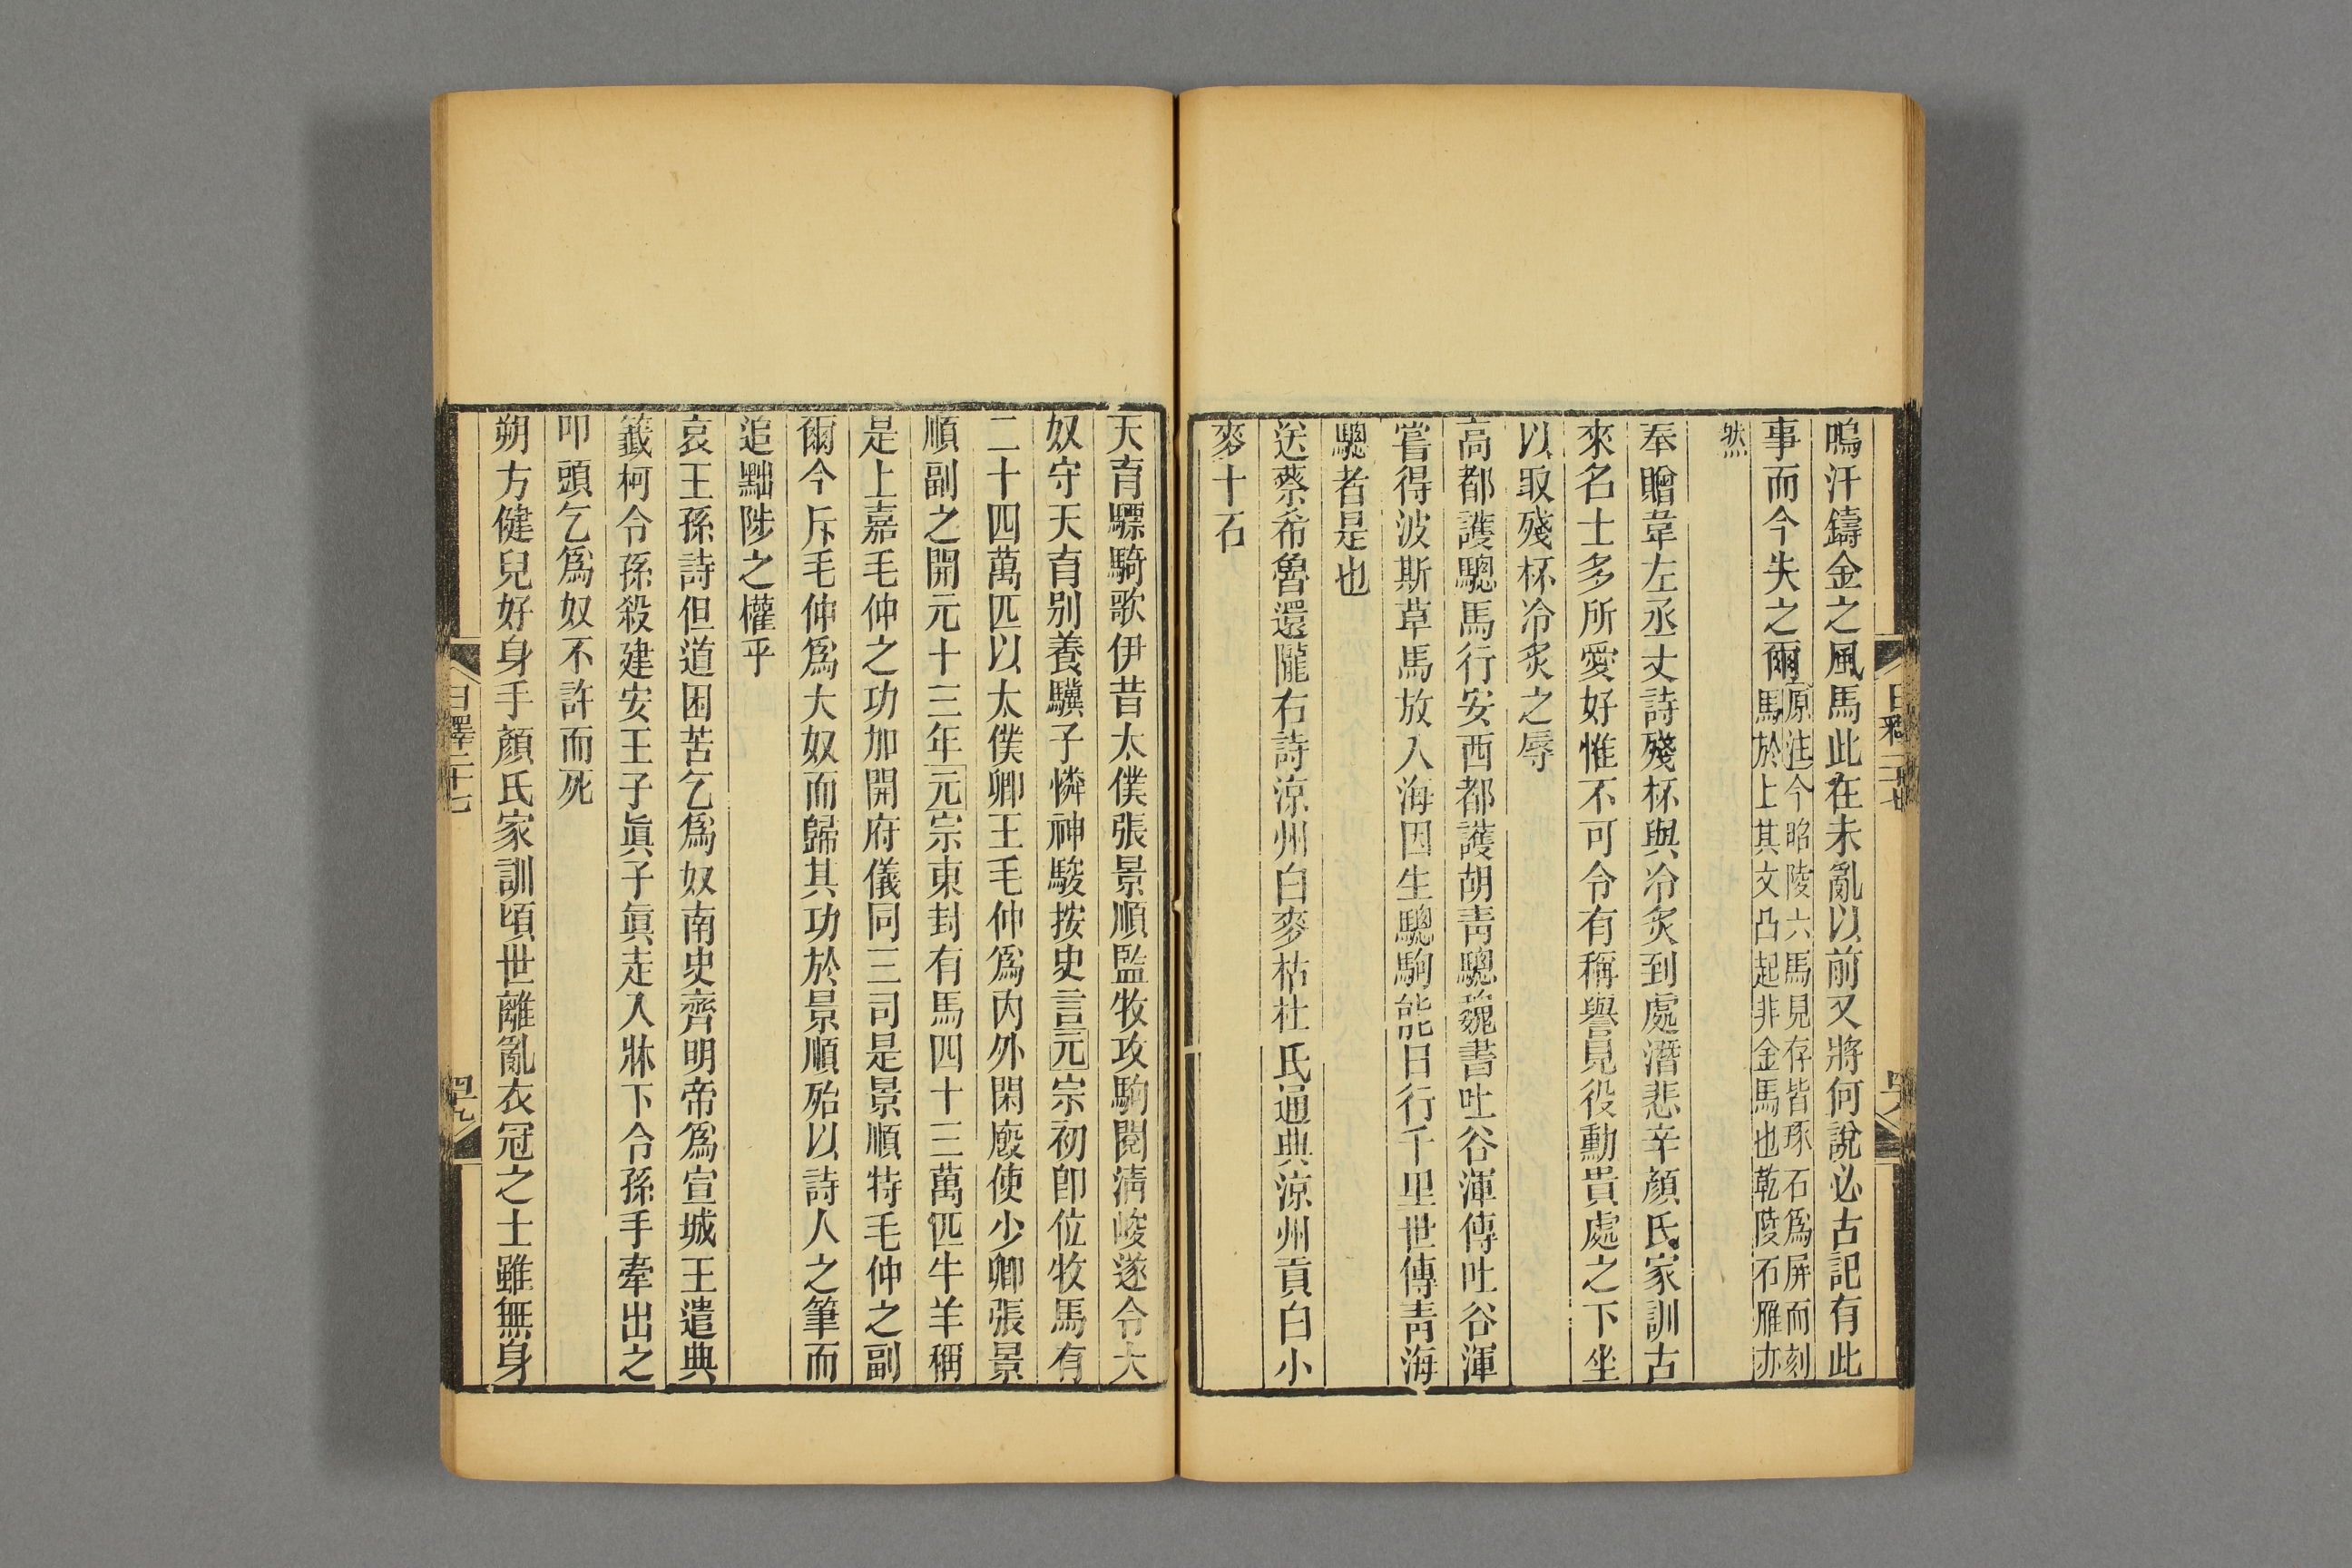 嗚汗鑄金之風馬此在未亂以前又將何說必古記有此
事而今失之爾原注今昭陵六馬見存皆琢石爲屏而刻
馬於上其文凸起非金馬也乾陵石雁亦
然
奉贈韋左丞丈詩殘杯與冷炙到處潛悲辛顏氏家訓古
來名士多所愛好惟不可令有稱譽見役勳貴處之下坐
以取殘杯冷炙之辱
高都護驄馬行安西都護胡靑驄魏書吐谷渾傳吐谷渾
嘗得波斯草馬放入海因生驄駒能日行千里世傳靑海
驄者是也
送蔡希魯還隴右詩涼州白麥枯杜氏通典涼州貢白小
麥十石
天育驃騎歌伊昔太僕張景順監牧攻駒閱淸峻遂令大
奴守天育別養驥子憐神駿按史言元宗初卽位牧馬有
二十四萬匹以太僕卿王毛仲爲內外閑廄使少卿張景
順副之開元十三年元宗東封有馬四十三萬匹牛羊稱
是上嘉毛仲之功加開府儀同三司是景順特毛仲之副
爾今斥毛仲爲大奴而歸其功於景順殆以詩人之筆而
追黜陟之權乎
哀王孫詩但道困苦乞爲奴南史齊明帝爲宣城王遣典
籤柯令孫殺建安王子眞子眞走入牀下令孫手牽出之
叩頭乞爲奴不許而死
朔方健兒好身手顏氏家訓頃世離亂衣冠之士雖無身
日釋二十七
四九